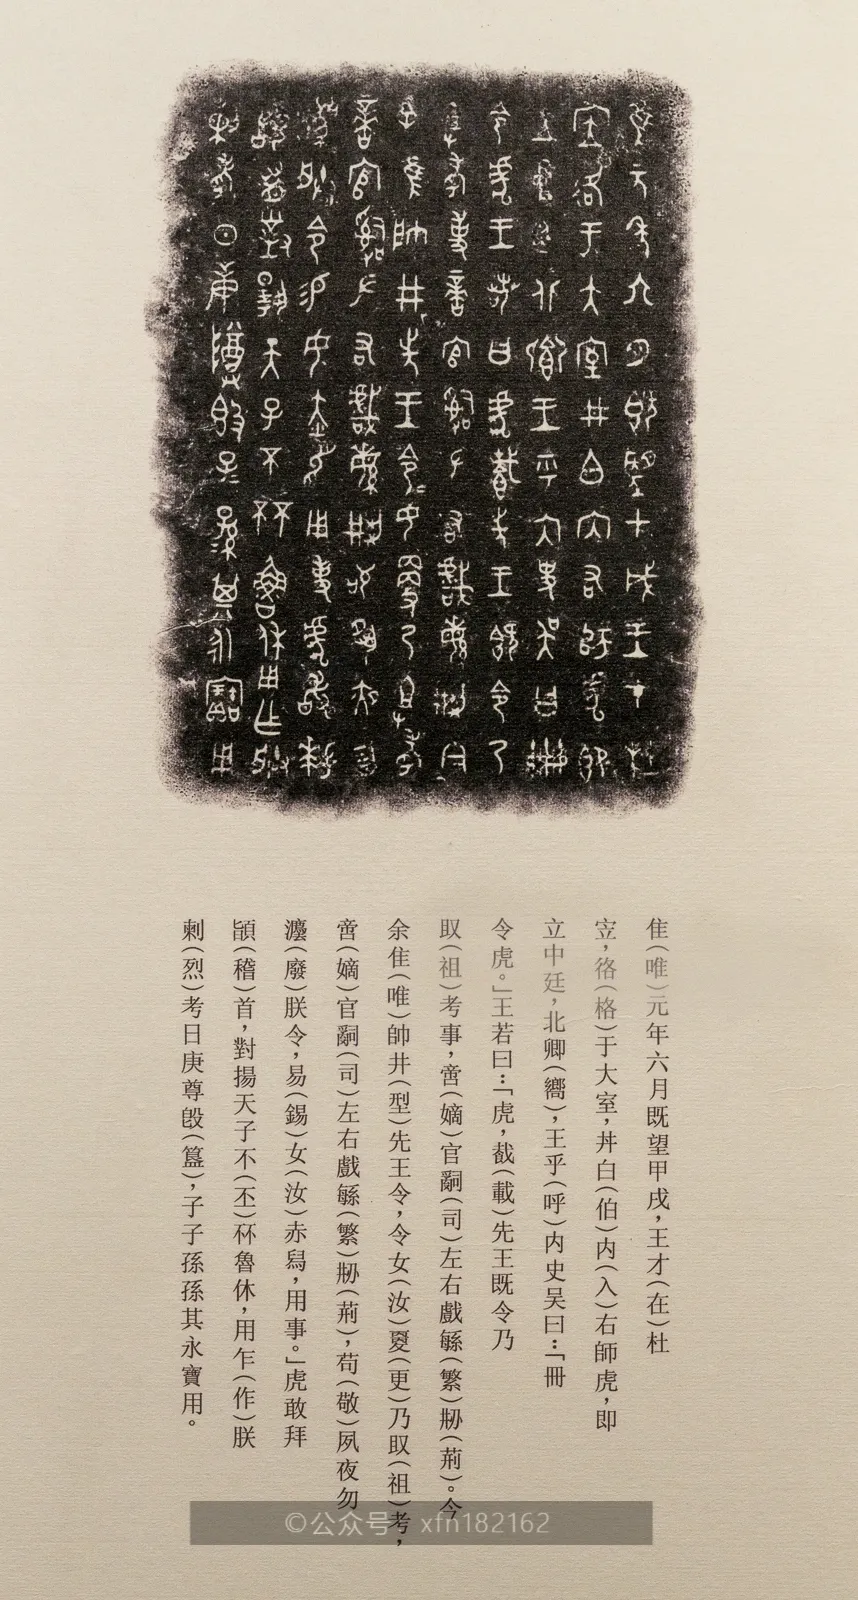 隹（唯）元年六月既望甲戌，王才（在）杜
𡧛，𢓜（格）于大室，丼白（伯）内（入）右師虎，即
立中廷，北卿（嚮），王乎（呼）内史吴曰：「冊
令虎。」王若曰：「虎，𢦚（載）先王既令乃
𠭯（祖）考事，啻（嫡）官𤔲（司）左右戲緐（繁）𠛬（荊）。今
余隹（唯）帥井（型）先王令，令女（汝）𠭍（更）乃𠭯（祖）考，
啻（嫡）官𤔲（司）左右戲緐（繁）𠛬（荊），苟（敬）夙夜勿
灋（廢）朕令，易（錫）女（汝）赤舄，用事。」虎敢拜
𩒨（稽）首，對揚天子不（丕）𠀠魯休，用乍（作）朕
剌（烈）考日庚尊𣪘（簋），子子孫孫其永寶用。
©公众号 xfn182162